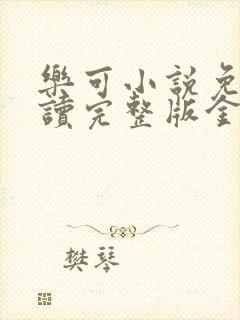 樂可小說免
讀完整版全
樊琴